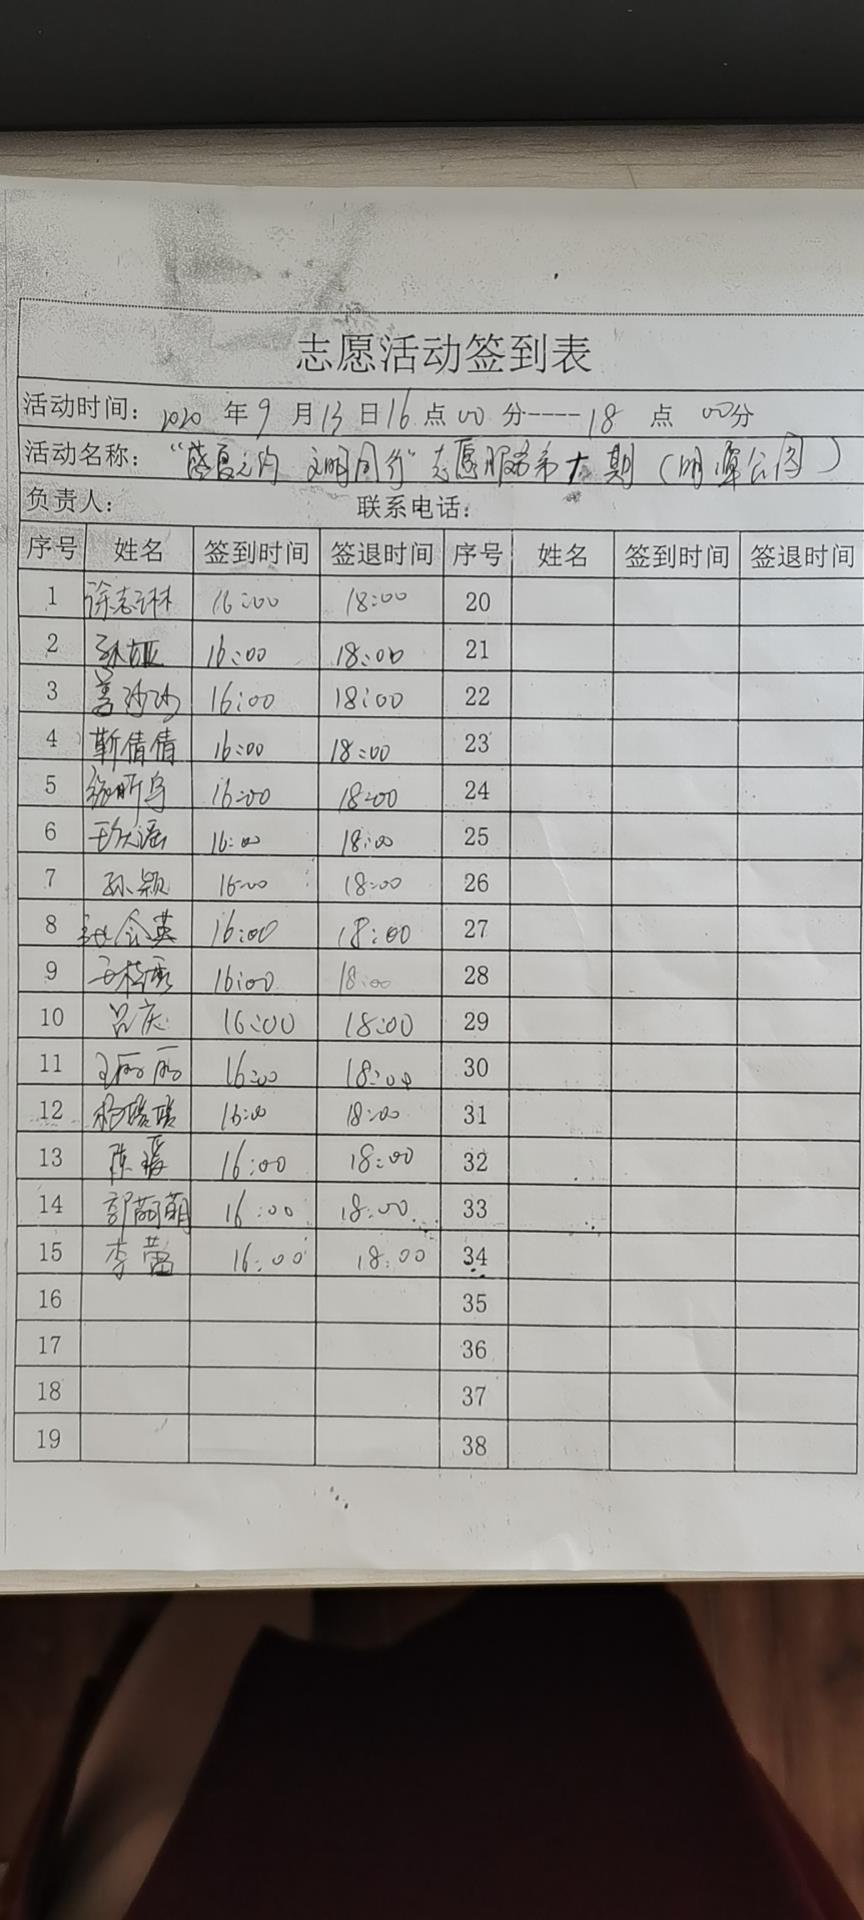 志愿活动签到表
活动时间: 2020 年 9 月 13 日 16 点 00 分----18 点 00分
活动名称: "盛夏之约 文明同行" 志愿服务第十期 (明潭公园)
负责人: 联系电话:
序号 姓名 签到时间 签退时间 序号 姓名 签到时间 签退时间
1 徐志琳 16:00 18:00 20
2 16:00 18:00 21
3 16:00 18:00 22
4 靳倩倩 16:00 18:00 23
5 16:00 18:00 24
6 16:00 18:00 25
7 孙颖 16:00 18:00 26
8 16:00 18:00 27
9 16:00 18:00 28
10 吕庆 16:00 18:00 29
11 王丽丽 16:00 18:00 30
12 16:00 18:00 31
13 陈瑗 16:00 18:00 32
14 16:00 18:00 33
15 李蕾 16:00 18:00 34
16 35
17 36
18 37
19 38